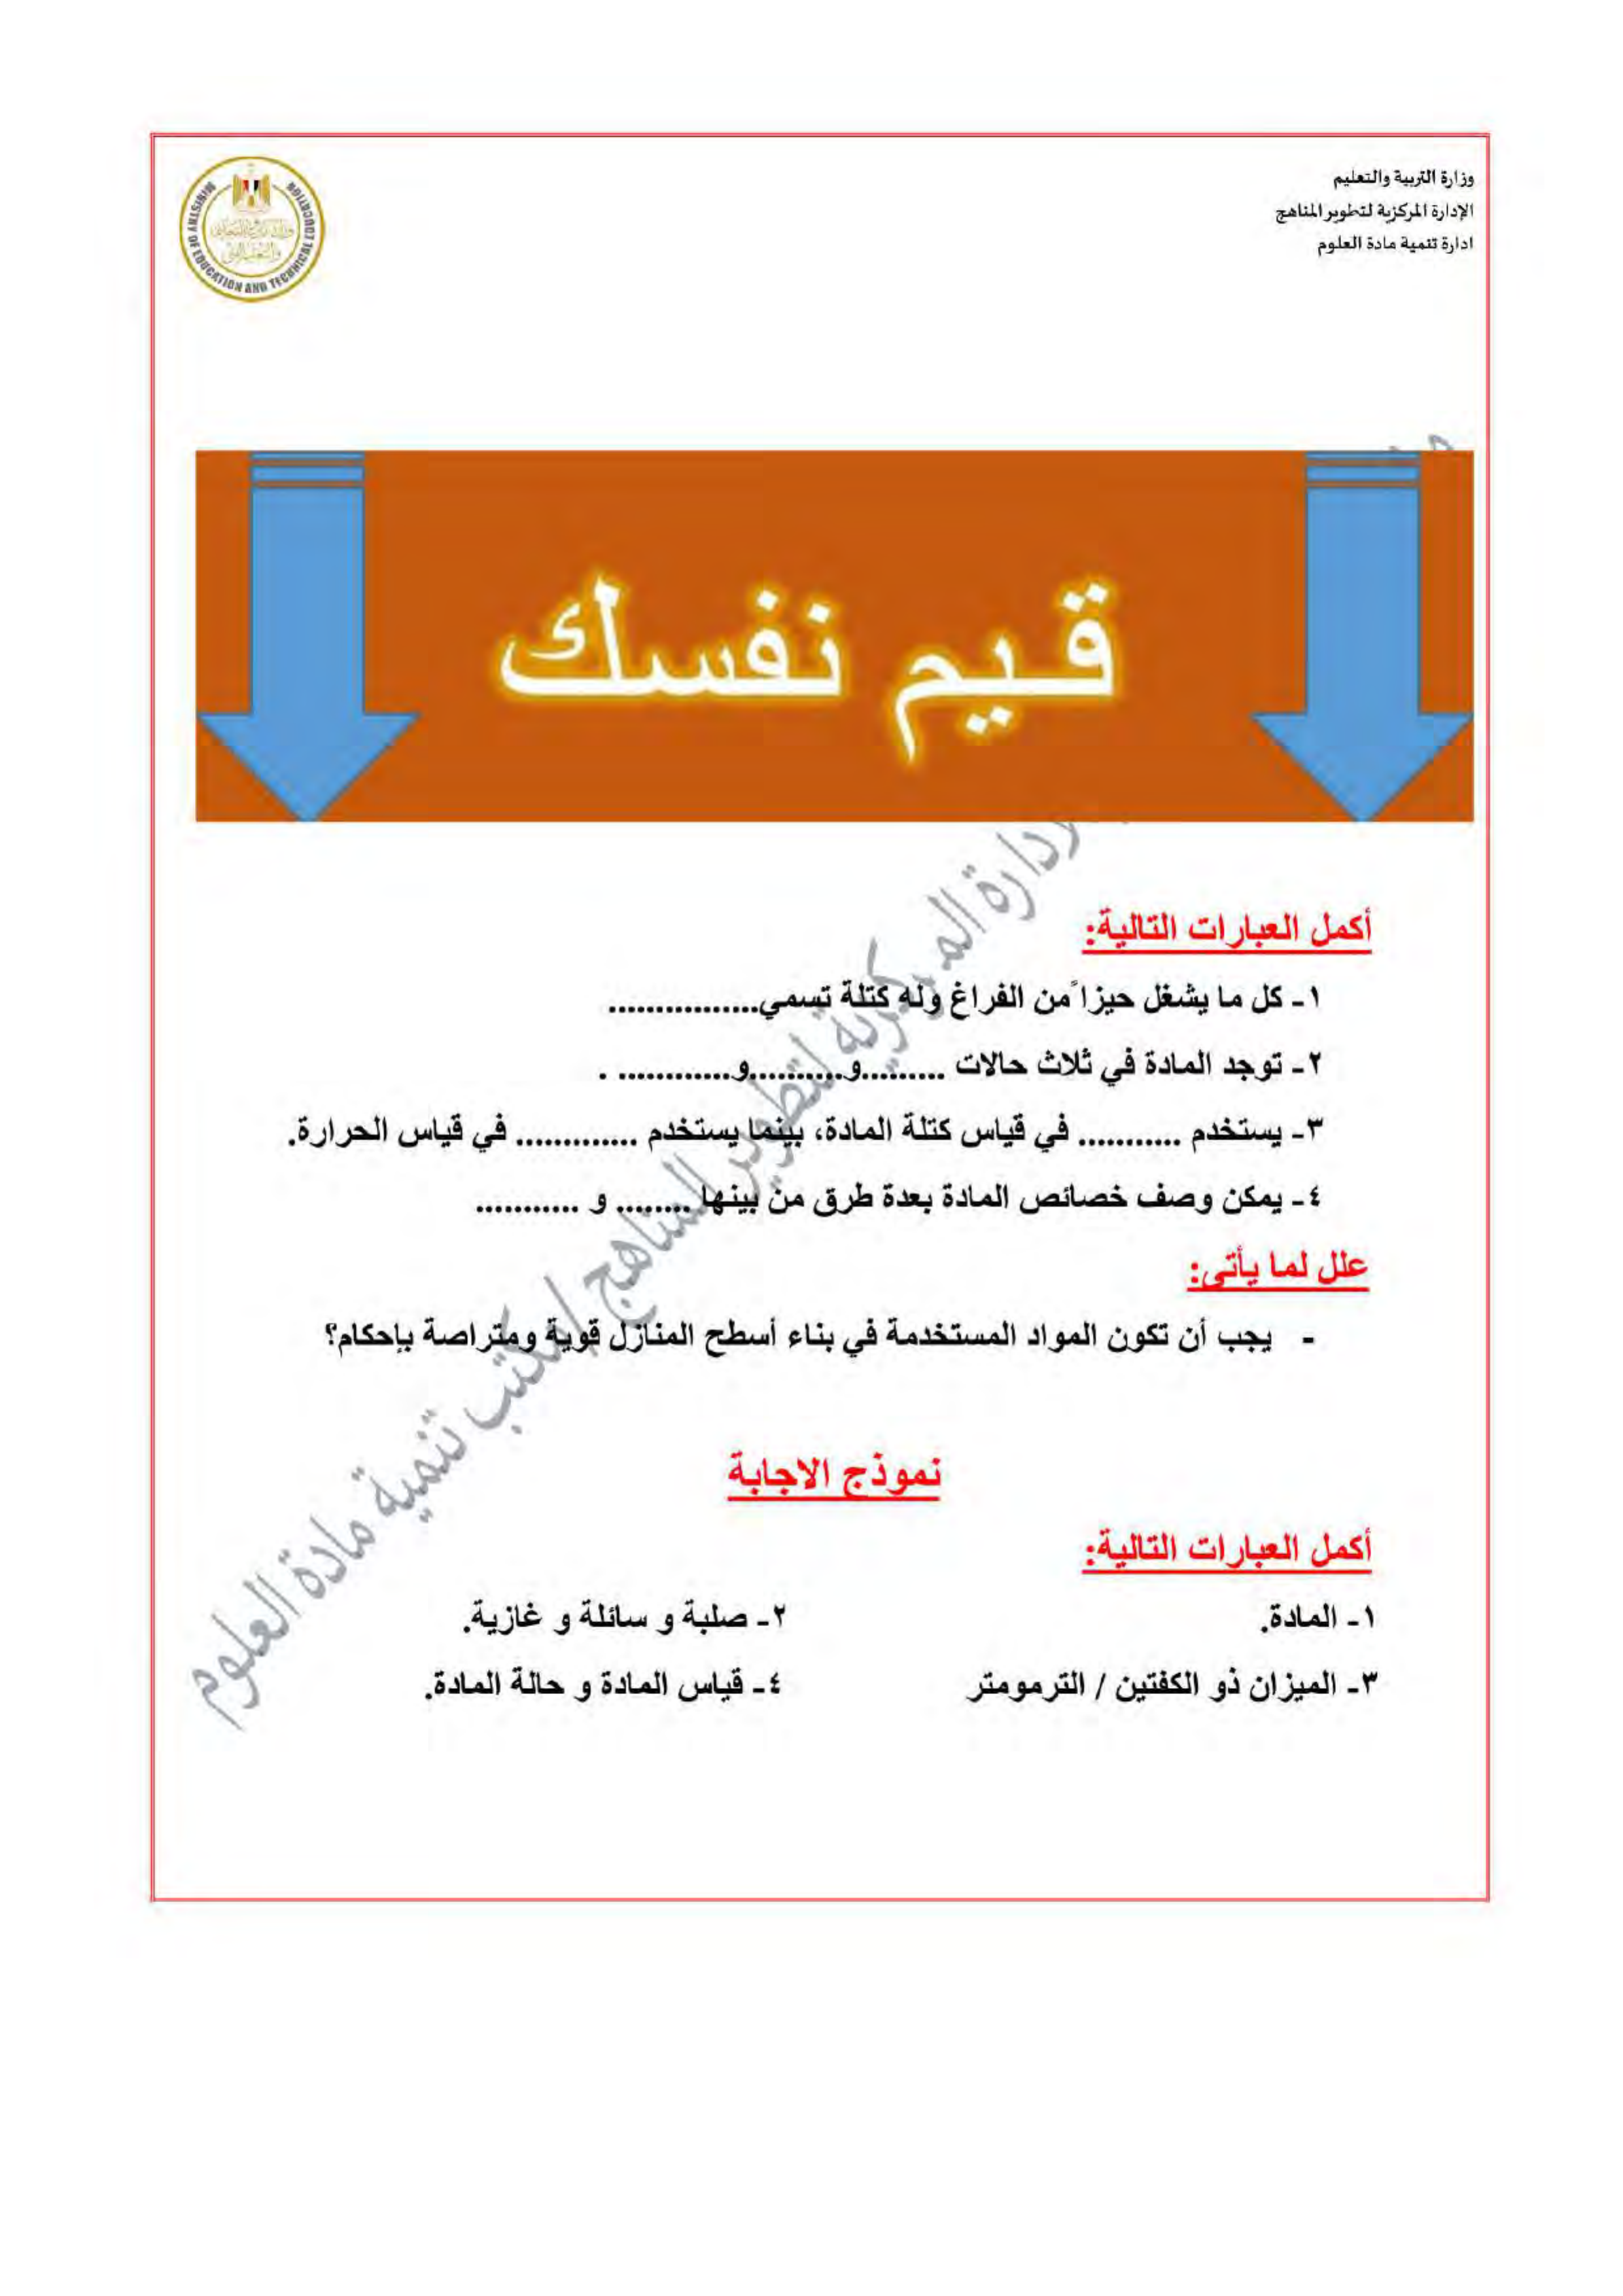 وزارة التربية والتعليم
الإدارة المركزية لتطوير المناهج
ادارة تنمية مادة العلوم
MINISTRY OF EDUCATION AND TECHNICAL EDUCATION
قيم نفسك
أكمل العبارات التالية:
١- كل ما يشغل حيزاً من الفراغ وله كتلة تسمي................
٢- توجد المادة في ثلاث حالات .........و..........و............ .
٣- يستخدم ........... في قياس كتلة المادة، بينما يستخدم ............. في قياس الحرارة.
٤- يمكن وصف خصائص المادة بعدة طرق من بينها ........ و ...........
علل لما يأتى:
- يجب أن تكون المواد المستخدمة في بناء أسطح المنازل قوية ومتراصة بإحكام؟
نموذج الاجابة
أكمل العبارات التالية:
١- المادة. ٢- صلبة و سائلة و غازية.
٣- الميزان ذو الكفتين / الترمومتر ٤- قياس المادة و حالة المادة.
الادارة المركزية لتطوير المناهج / مكتب تنمية مادة العلوم